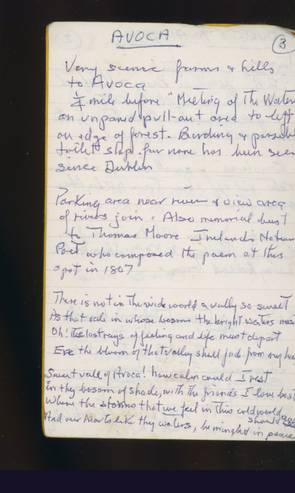 AVOCA
3
Very scenic farms & hills
to Avoca
¼ mile before "Meeting of the Water
an unpaved pull-out area to left
on edge of forest. Birding &
toilet stop for none has been seen
since Dublin
Parking area near river & view area
of rivers join. Also memorial bust
to Thomas Moore Irelands
Poet who composed the poem at this
spot in 1807
There is not in the wide world a vally so sweet
As that vale in whose bosom the bright waters mee
Oh! the last rays of feeling and life must depart
Ere the bloom of that valley shall fade from my hea
Sweet vall of Avoca! how calm could I rest
In thy bosom of shade, with the friends I love best
Where the storms that we feel in this cold world should
And our hearts like thy waters, be mingled in peace